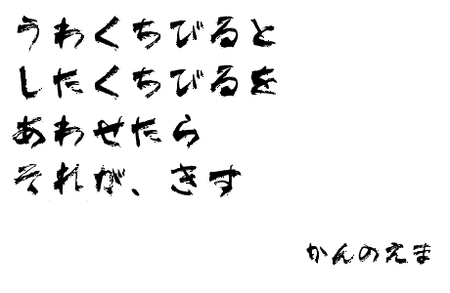 うわくちびると
したくちびるを
あわせたら
それが、きす
かんのえま